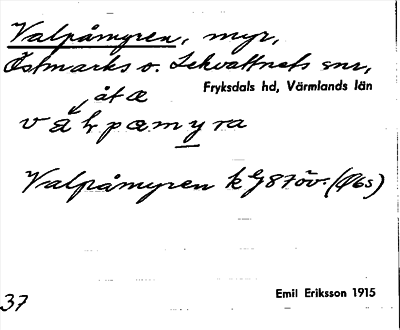 Valpåmyren, myr,
Östmarks o. Lekvattnets snr,
Fryksdals hd, Värmlands län
åt a
Valpåmyren k
Emil Eriksson 1915
37